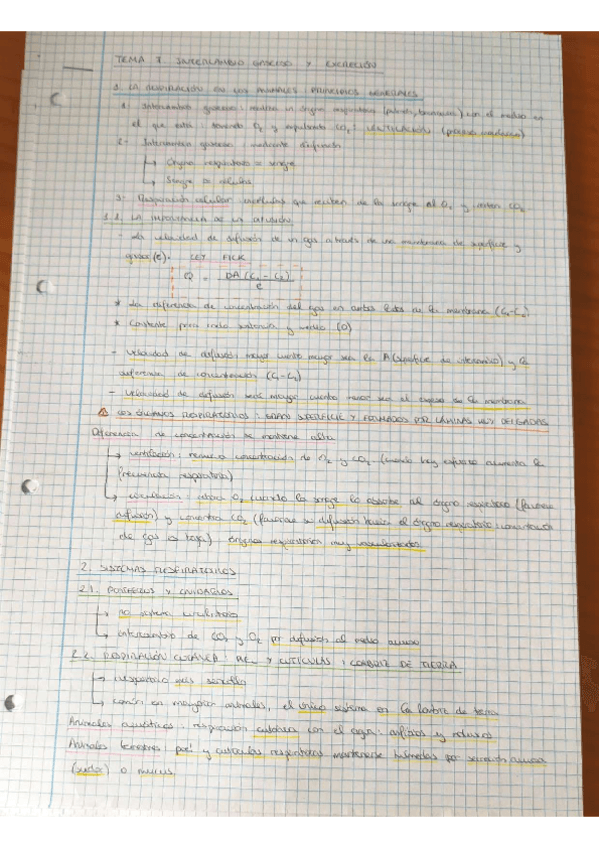 TEMA 7. INTERCAMBIO GASEOSO Y EXCRECIÓN
1. LA RESPIRACIÓN EN LOS ANIMALES: PRINCIPIOS GENERALES
1. Intercambio gaseoso: realiza un órgano respiratorio (pulmón, branquias) con el medio en
el que está: tomando O2 y expulsando CO2: VENTILACIÓN (proceso mecánico)
2- Intercambio gaseoso: mediante difusión
Órgano respiratorio sangre
Sangre células
3- Respiración celular: células que reciben de la sangre el O2 y CO2
1.1. LA IMPORTANCIA DE LA DIFUSIÓN
- La velocidad de difusión de un gas a través de una membrana de superficie y
grosor (e). LEY FICK
Q = DA (C1 - C2) / e
* La diferencia de concentración del gas en ambos lados de la membrana (C1-C2)
* Constante para cada sustancia y medio (D)
- Velocidad de difusión mayor cuanto mayor sea la A (superficie de intercambio) y la
diferencia de concentración (C1-C2)
- Velocidad de difusión será mayor cuanto menor sea el espesor de la membrana
LOS ÓRGANOS RESPIRATORIOS: GRAN SUPERFICIE Y FORMADOS POR LÁMINAS MUY DELGADAS
Diferencia de concentración se mantiene alta
ventilación: renueva concentración de O2 y CO2 (cuando hay esfuerzo aumenta la
frecuencia respiratoria)
circulación: O2 cuando la sangre lo absorbe al órgano respiratorio (favorece
difusión) y CO2 (favorece su difusión hacia el órgano respiratorio: concentración
de gas es baja) órganos respiratorios muy vascularizados
2. SISTEMAS RESPIRATORIOS
2.1. PORÍFEROS Y CNIDARIOS
no sistema
intercambio de CO2 y O2 por difusión al medio acuoso
2.2. RESPIRACIÓN CUTÁNEA: PIEL Y CUTÍCULAS: LOMBRIZ DE TIERRA
respiratorio más sencillo
común en mayoría animales, el único sistema en la lombriz de tierra
Animales acuáticos: respiración cutánea con el agua: anfibios y
Animales terrestres: piel y cutículas respiratorias mantenerse húmedas por secreción acuosa
(sudor) o mucus.